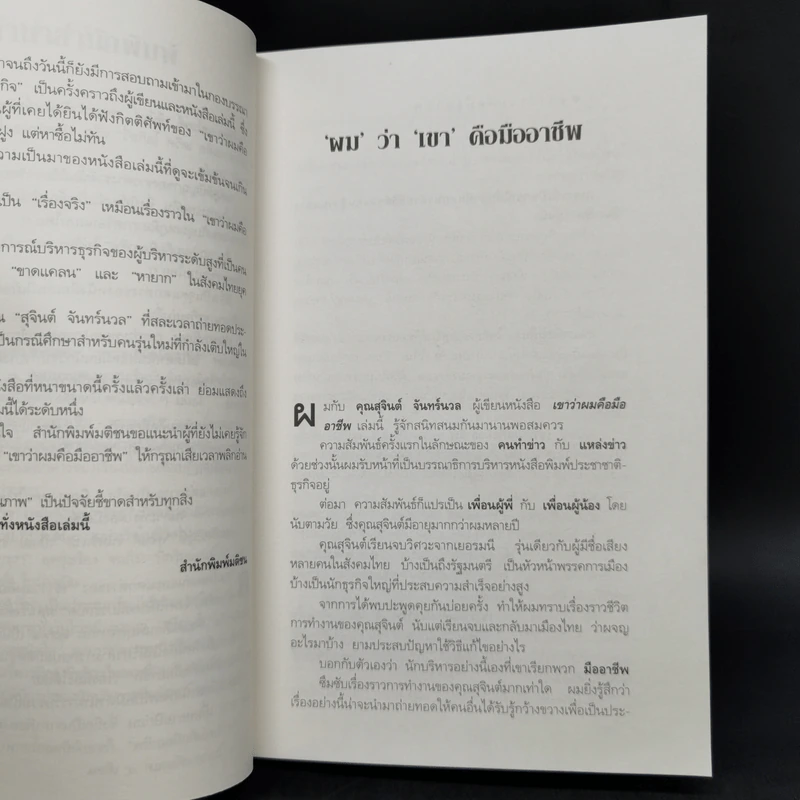 าจนถึงวันนี้ก็ยังมีการสอบถามเข้ามาในกองบรรณา
กิจ” เป็นครั้งคราวถึงผู้เขียนและหนังสือเล่มนี้ ซึ่ง
ผู้ที่เคยได้ยินได้ฟังกิตติศัพท์ของ “เขาว่าผมคือ
ฝูง แต่หาซื้อไม่ทัน
วามเป็นมาของหนังสือเล่มนี้ที่ดูจะเข้มข้นจนเกิน
เป็น “เรื่องจริง” เหมือนเรื่องราวใน “เขาว่าผมคือ
การณ์บริหารธุรกิจของผู้บริหารระดับสูงที่เป็นคน
“ขาดแคลน” และ “หายาก” ในสังคมไทยยุค
น “สุจินต์ จันทร์นวล” ที่สละเวลาถ่ายทอดประ-
ป็นกรณีศึกษาสำหรับคนรุ่นใหม่ที่กำลังเติบใหญ่ใน
งสือที่หนาขนาดนี้ครั้งแล้วครั้งเล่า ย่อมแสดงถึง
มนี้ได้ระดับหนึ่ง
ใจ สำนักพิมพ์มติชนขอแนะนำผู้ที่ยังไม่เคยรู้จัก
“เขาว่าผมคือมืออาชีพ” ให้กรุณาเสียเวลาพลิกอ่าน
ณภาพ” เป็นปัจจัยชี้ขาดสำหรับทุกสิ่ง
ทั่งหนังสือเล่มนี้
สำนักพิมพ์มติชน
‘ผม’ ว่า ‘เขา’ คือมืออาชีพ
ผมกับ คุณสุจินต์ จันทร์นวล ผู้เขียนหนังสือ เขาว่าผมคือมือ
อาชีพ เล่มนี้ รู้จักสนิทสนมกันมานานพอสมควร
ความสัมพันธ์ครั้งแรกในลักษณะของ คนทำข่าว กับ แหล่งข่าว
ด้วยช่วงนั้นผมรับหน้าที่เป็นบรรณาธิการบริหารหนังสือพิมพ์ประชาชาติ-
ธุรกิจอยู่
ต่อมา ความสัมพันธ์ก็แปรเป็น เพื่อนผู้พี่ กับ เพื่อนผู้น้อง โดย
นับตามวัย ซึ่งคุณสุจินต์มีอายุมากกว่าผมหลายปี
คุณสุจินต์เรียนจบวิศวะจากเยอรมนี รุ่นเดียวกับผู้มีชื่อเสียง
หลายคนในสังคมไทย บ้างเป็นถึงรัฐมนตรี เป็นหัวหน้าพรรคการเมือง
บ้างเป็นนักธุรกิจใหญ่ที่ประสบความสำเร็จอย่างสูง
จากการได้พบปะพูดคุยกันบ่อยครั้ง ทำให้ผมทราบเรื่องราวชีวิต
การทำงานของคุณสุจินต์ นับแต่เรียนจบและกลับมาเมืองไทย ว่าผจญ
อะไรมาบ้าง ยามประสบปัญหาใช้วิธีแก้ไขอย่างไร
บอกกับตัวเองว่า นักบริหารอย่างนี้เองที่เขาเรียกพวก มืออาชีพ
ซึมซับเรื่องราวการทำงานของคุณสุจินต์มากเท่าใด ผมยิ่งรู้สึกว่า
เรื่องอย่างนี้น่าจะนำมาถ่ายทอดให้คนอื่นได้รับรู้กว้างขวางเพื่อเป็นประ-